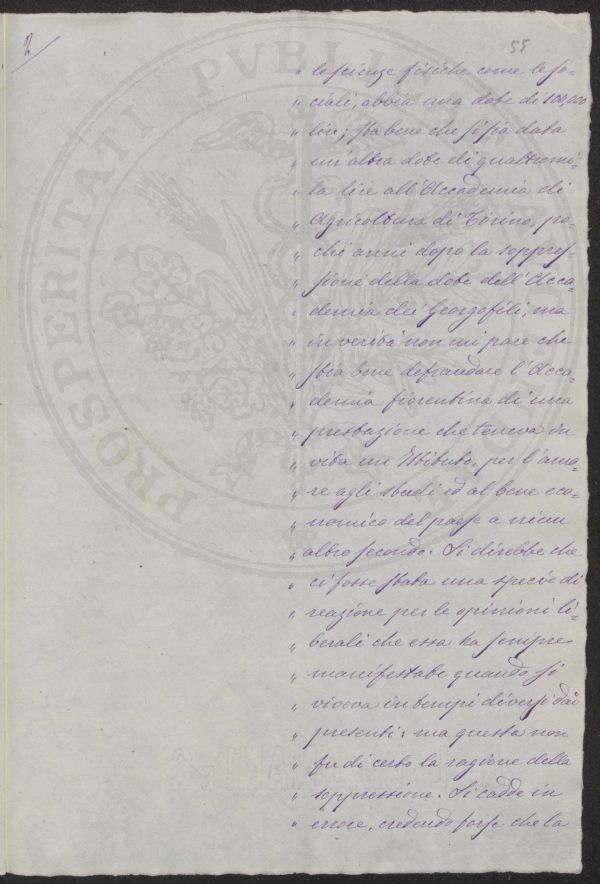 2/
55
„ le scienze fisiche come le so-
„ ciali, abbia una dote di 100,000
„ lire; sta bene che si sia data
„ un'altra dote di quattromi-
„ la lire all'Accademia di
„ Agricoltura di Torino, po-
„ chi anni dopo la soppres-
„ sione della dote dell'Acca-
„ demia dei Georgofili, ma
„ in verità non mi pare che
„ stia bene defraudare l'Acca-
„ demia fiorentina di una
„ prestazione che teneva in
„ vita un Istituto, per l'amo-
„ re agli studi ed al bene eco-
„ nomico del paese a niun
„ altro secondo. Si direbbe che
„ ci fosse stata una specie di
„ reazione per le opinioni li-
„ berali che essa ha sempre
„ manifestate quando si
„ viveva in tempi diversi dai
„ presenti: ma questa non
„ fu di certo la ragione della
„ soppressione. Si cadde in
„ errore, credendo forse che la
PROSPERITATI PVBLI